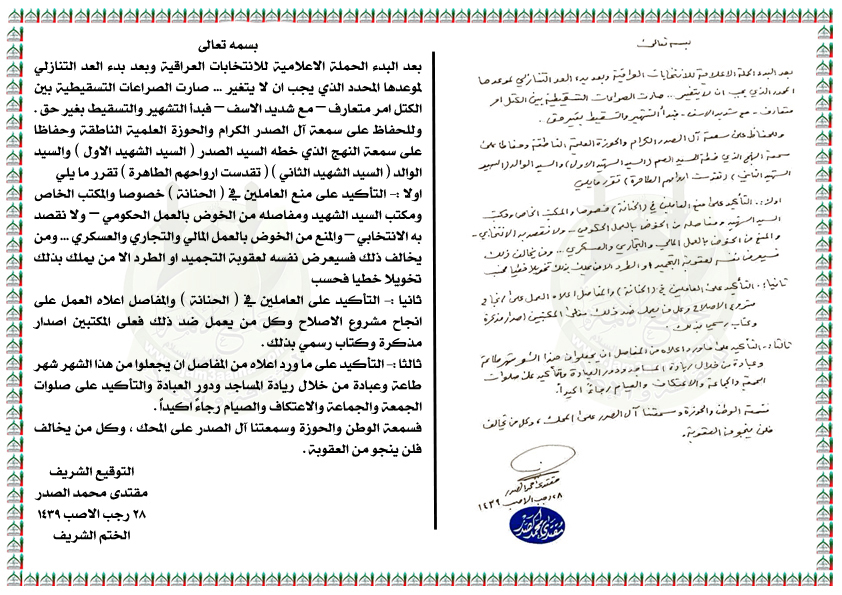 بسمه تعالى
بعد البدء الحملة الاعلامية للانتخابات العراقية وبعد بدء العد التنازلي
لموعدها المحدد الذي يجب ان لا يتغير ... صارت الصراعات التسقيطية بين
الكتل امر متعارف – مع شديد الاسف – فبدأ التشهير والتسقيط بغير حق .
وللحفاظ على سمعة آل الصدر الكرام والحوزة العلمية الناطقة وحفاظا
على سمعة النهج الذي خطه السيد الصدر ( السيد الشهيد الاول ) والسيد
الوالد ( السيد الشهيد الثاني ) ( تقدست ارواحهم الطاهرة ) تقرر ما يلي
اولا :- التأكيد على منع العاملين في ( الحنانة ) خصوصا والمكتب الخاص
ومكتب السيد الشهيد ومفاصله من الخوض بالعمل الحكومي – ولا نقصد
به الانتخابي – والمنع من الخوض بالعمل المالي والتجاري والعسكري ... ومن
يخالف ذلك فسيعرض نفسه لعقوبة التجميد او الطرد الا من يملك بذلك
تخويلا خطيا فحسب
ثانيا :- التأكيد على العاملين في ( الحنانة ) والمفاصل اعلاه العمل على
انجاح مشروع الاصلاح وكل من يعمل ضد ذلك فعلى المكتبين اصدار
مذكرة وكتاب رسمي بذلك .
ثالثا :- التأكيد على ما ورد اعلاه من المفاصل ان يجعلوا من هذا الشهر شهر
طاعة وعبادة من خلال ريادة المساجد ودور العبادة والتأكيد على صلوات
الجمعة والجماعة والاعتكاف والصيام رجاءً اكيداً .
فسمعة الوطن والحوزة وسمعتنا آل الصدر على المحك ، وكل من يخالف
فلن ينجو من العقوبة .
التوقيع الشريف
مقتدى محمد الصدر
٢٨ رجب الاصب ١٤٣٩
الختم الشريف
بسمه تعالى
بعد البدء الحملة الاعلامية للانتخابات العراقية وبعد بدء العد التنازلي لموعدها
المحدد الذي يجب ان لا يتغير ... صارت الصراعات التسقيطية بين الكتل امر
متعارف - مع شديد الاسف - فبدأ التشهير والتسقيط بغير حق .
وللحفاظ على سمعة آل الصدر الكرام والحوزة العلمية الناطقة وحفاظا على
سمعة النهج الذي خطه السيد الصدر (السيد الشهيد الاول) والسيد الوالد (السيد
الشهيد الثاني) (تقدست ارواحهم الطاهرة) تقرر ما يلي
اولا :- التأكيد على منع العاملين في (الحنانة) خصوصا والمكتب الخاص ومكتب
السيد الشهيد ومفاصله من الخوض بالعمل الحكومي - ولا نقصد به الانتخابي -
والمنع من الخوض بالعمل المالي والتجاري والعسكري ... ومن يخالف ذلك
فسيعرض نفسه لعقوبة التجميد او الطرد الا من يملك بذلك تخويلا خطيا فحسب
ثانيا :- التأكيد على العاملين في (الحنانة) والمفاصل اعلاه العمل على انجاح
مشروع الاصلاح وكل من يعمل ضد ذلك فعلى المكتبين اصدار مذكرة
وكتاب رسمي بذلك .
ثالثا :- التأكيد على ما ورد اعلاه من المفاصل ان يجعلوا من هذا الشهر شهر طاعة
وعبادة من خلال ريادة المساجد ودور العبادة والتأكيد على صلوات
الجمعة والجماعة والاعتكاف والصيام رجاءً اكيداً .
فسمعة الوطن والحوزة وسمعتنا آل الصدر على المحك ، وكل من يخالف
فلن ينجو من العقوبة .
مقتدى محمد الصدر
٢٨ رجب الاصب ١٤٣٩